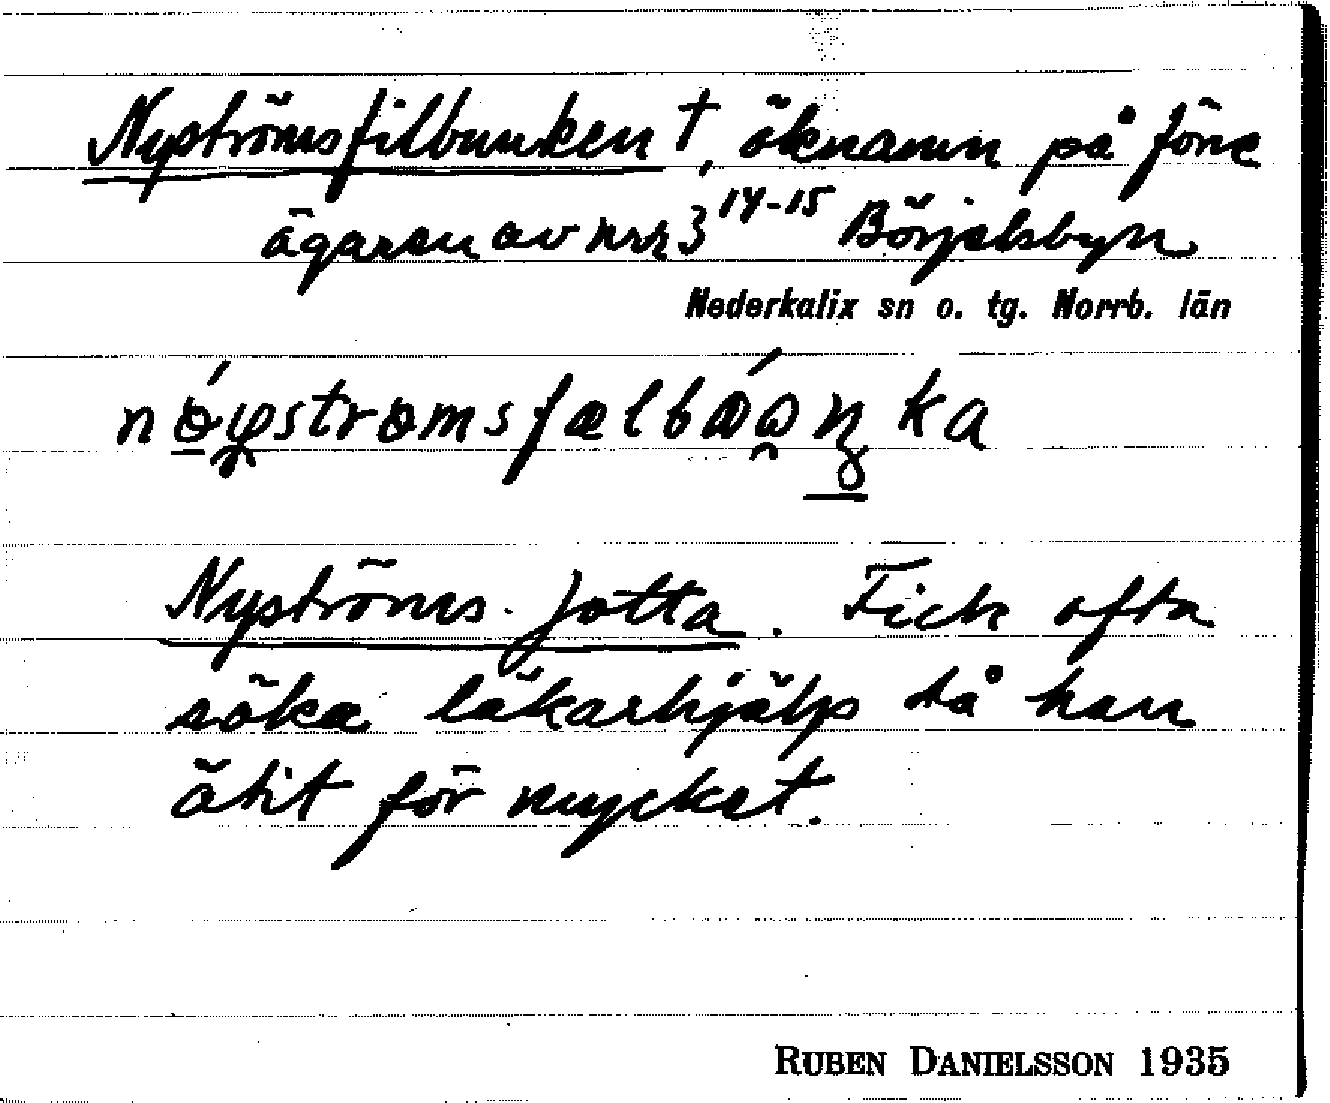 Nyströmsfilbunken †, öknamn på förre
ägaren av nrr 3 14-15 Börjelsbyn
Nederkalix sn o. tg. Norrb. län
Nyströms-Jotta. Fick ofta
söka läkarhjälp då han
ätit för mycket.
RUBEN DANIELSSON 1935